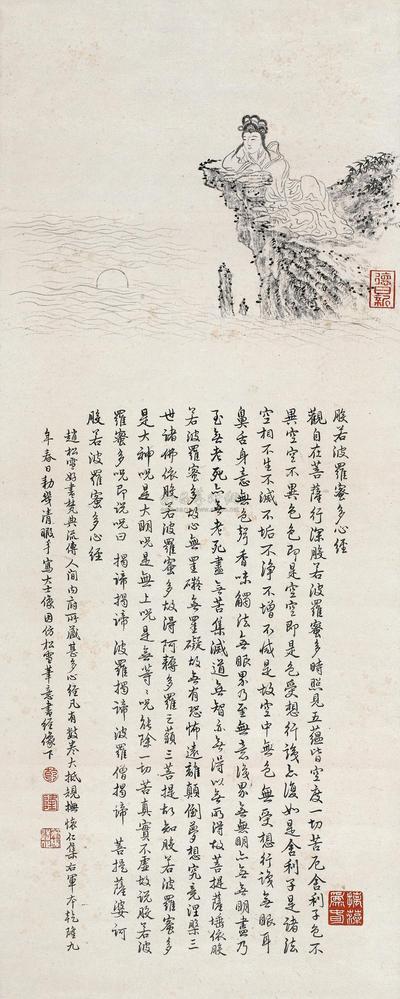 般若波羅蜜多心經
觀自在菩薩行深般若波羅蜜多時照見五蘊皆空度一切苦厄舍利子色不
異空空不異色色即是空空即是色受想行識亦復如是舍利子是諸法
空相不生不滅不垢不淨不增不減是故空中無色無受想行識無眼耳
鼻舌身意無色聲香味觸法無眼界乃至無意識界無無明亦無無明盡乃
至無老死亦無老死盡無苦集滅道無智亦無得以無所得故菩提薩埵依般
若波羅蜜多故心無罣礙無罣礙故無有恐怖遠離顛倒夢想究竟涅槃三
世諸佛依般若波羅蜜多故得阿耨多羅三藐三菩提故知般若波羅蜜多
是大神呪是大明呪是無上呪是無等々呪能除一切苦真實不虛故說般若波
羅蜜多呪即說呪曰 揭諦揭諦 波羅揭諦 波羅僧揭諦 菩提薩婆訶
般若波羅蜜多心經
趙松雪好書梵典流傳人間內府所藏其多心經凡有數卷大抵規撫懷仁集右軍本乾隆九
年春日勅幾清暇手寫大士像因仿松雪筆意書經像下
德日新
乾
隆